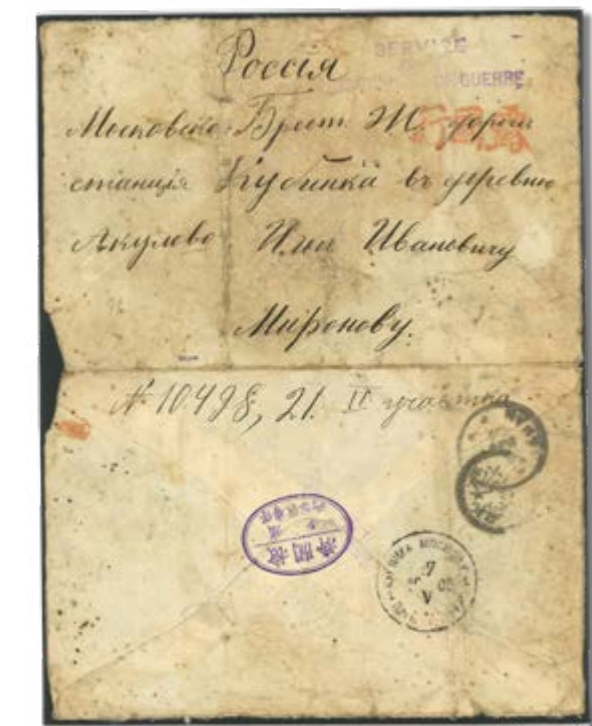 Россія
SERVICE
DE GUERRE
Московско-Брест. Ж. дороги
станція Кубинка въ деревню
Акулево Илье Ивановичу
Миронову.
№ 10498, 21. II участка
КУБИНКА МОСК
7
V